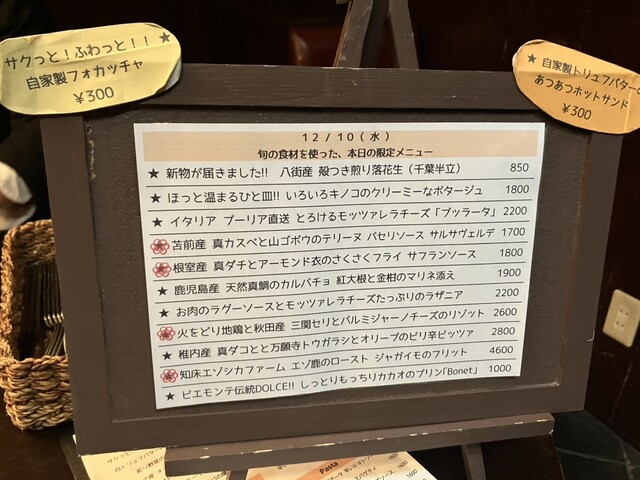 サクっと！ふわっと！！ ★
自家製フォカッチャ
￥300
★ 自家製トリュフバターの
あつあつホットサンド
￥300
12/10(水)
旬の食材を使った、本日の限定メニュー
★ 新物が届きました!! 八街産 殻つき煎り落花生（千葉半立） 850
★ ほっと温まるひと皿!! いろいろキノコのクリーミーなポタージュ 1800
★ イタリア プーリア直送 とろけるモッツァレラチーズ「ブッラータ」 2200
苫前産 真カスベと山ゴボウのテリーヌ パセリソース サルサヴェルデ 1700
根室産 真ダチとアーモンド衣のさくさくフライ サフランソース 1800
★ 鹿児島産 天然真鯛のカルパチョ 紅大根と金柑のマリネ添え 1900
★ お肉のラグーソースとモッツァレラチーズたっぷりのラザニア 2200
火をどり地鶏と秋田産 三関セリとパルミジャーノチーズのリゾット 2600
★ 稚内産 真ダコとと万願寺トウガラシとオリーブのピリ辛ピッツァ 2800
知床エゾシカファーム エゾ鹿のロースト ジャガイモのフリット 4600
★ ピエモンテ伝統DOLCE!! しっとりもっちりカカオのプリン「Bonet」 1000
Pasta